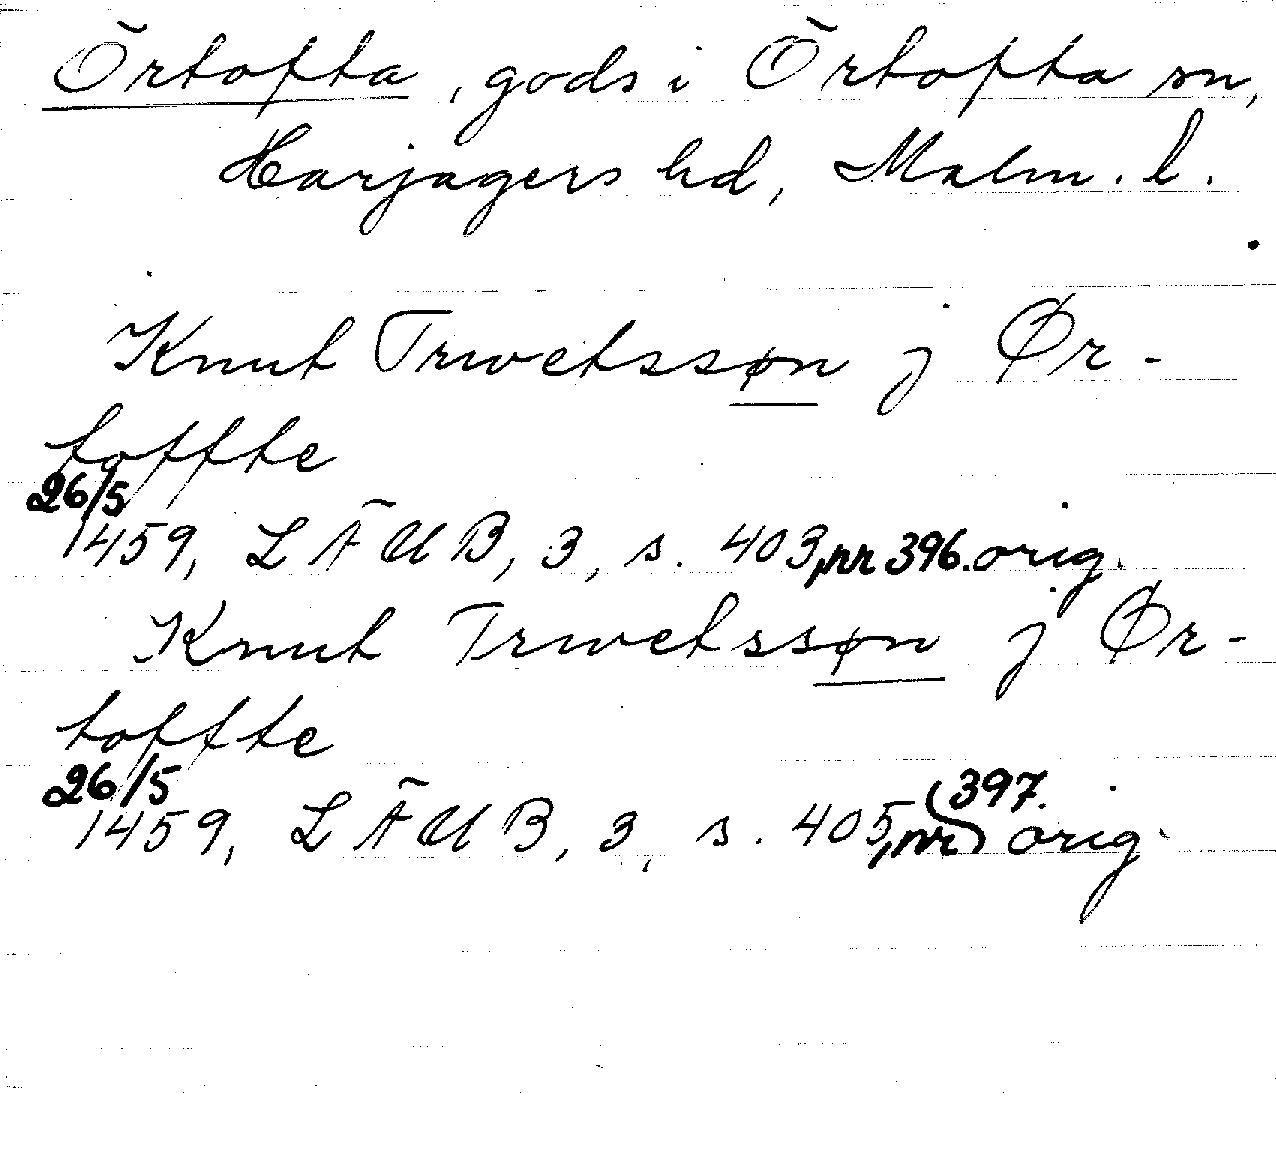 Örtofta, gods i Örtofta sn,
Harjagers hd, Malm. l.
Knut Trwetssøn j Ør-
toffte
26/5
1459, LÄUB, 3, s. 403, nr 396. orig.
Knut Trwetssøn j Ør-
toffte
26/5
1459, LÄUB, 3, s. 405, nr 397. orig.